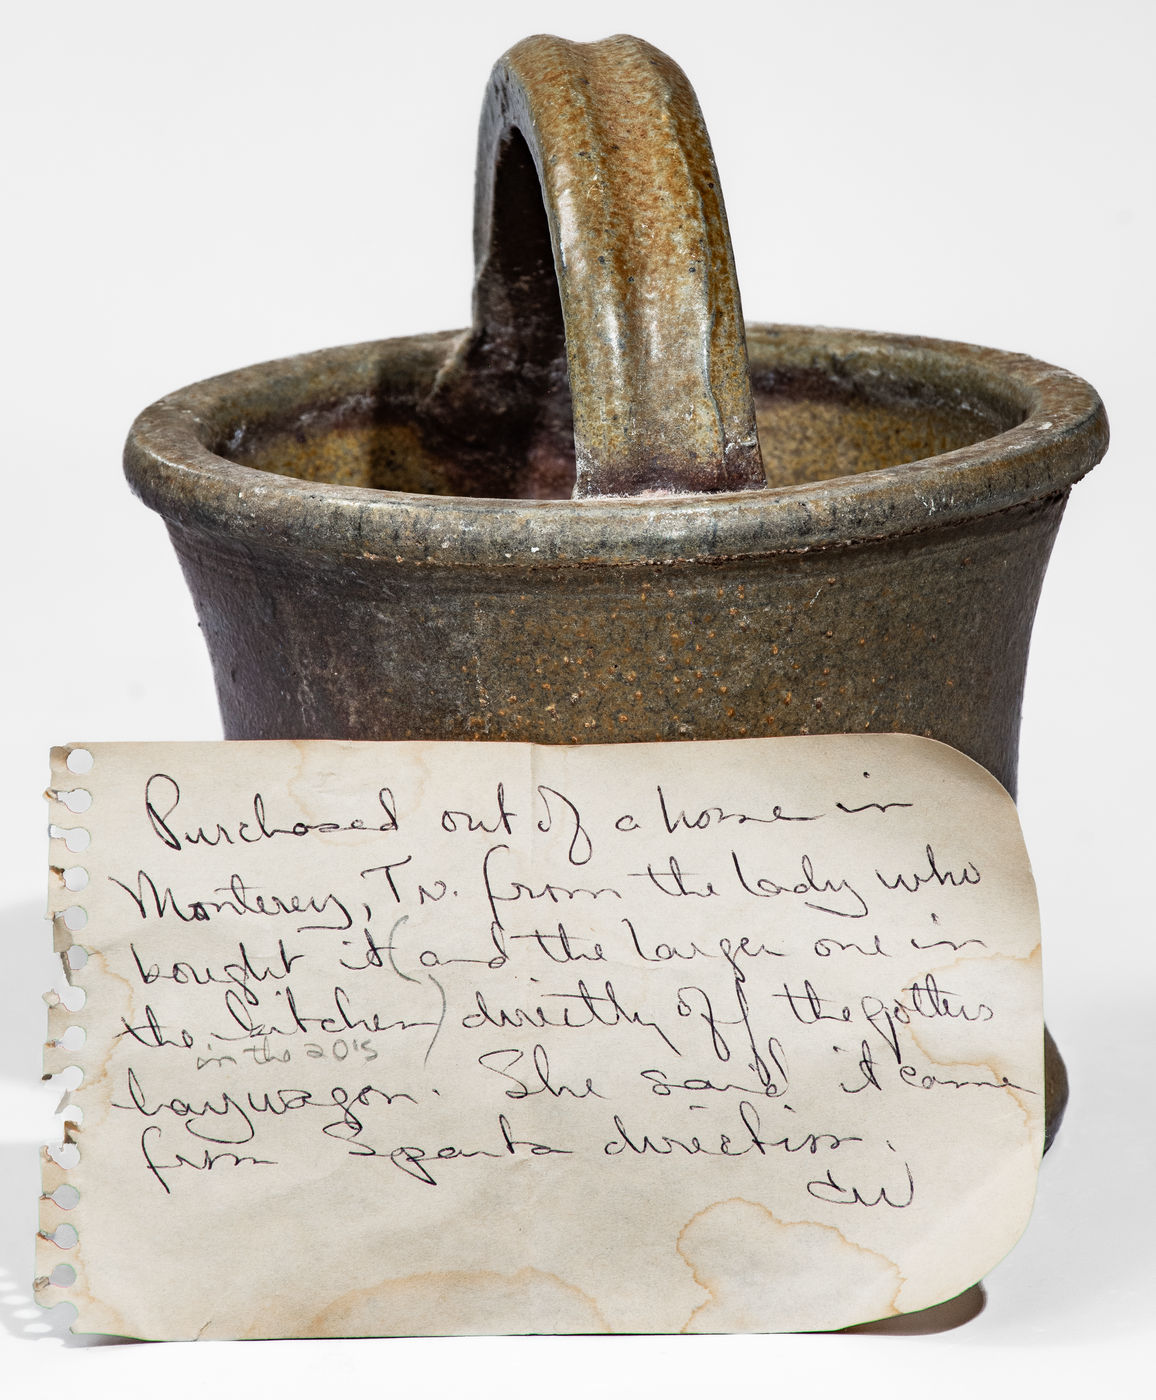 Purchased out of a home in
Monterey, Tn. from the lady who
bought it (and the larger one in
the kitchen) directly off the potters
in the 20's
haywagon. She said it came
from Sparta direction.
CW